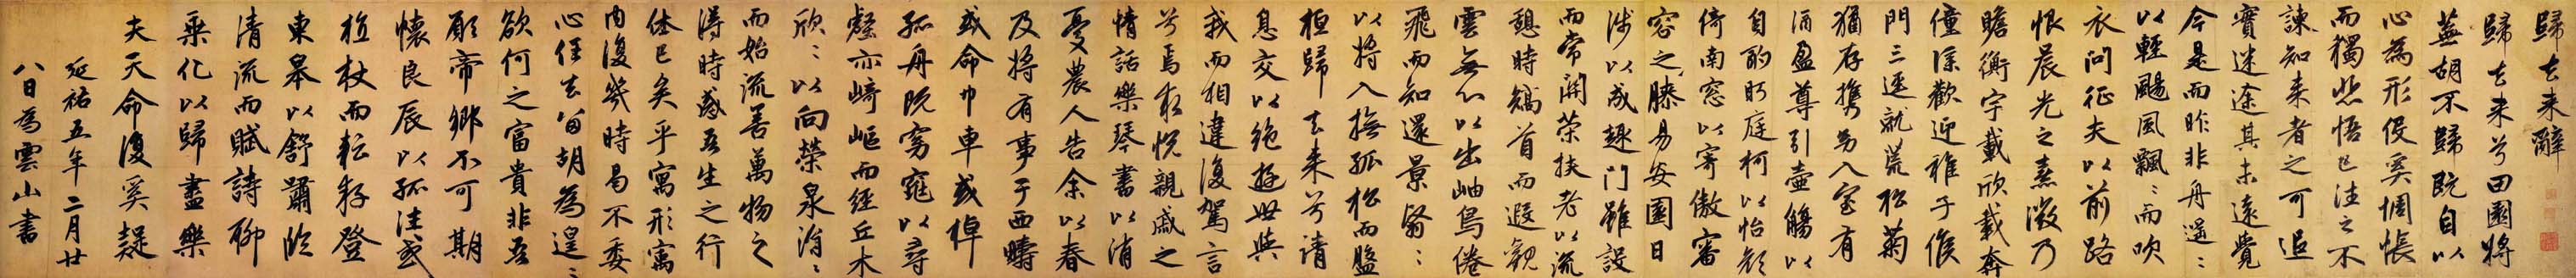 歸去来辭
歸去来兮田園將
蕪胡不歸既自以
心為形役奚惆悵
而獨悲悟已往之不
諫知来者之可追
實迷途其未遠覺
今是而昨非舟遥〻
以輕颺風飄〻而吹
衣問征夫以前路
恨晨光之熹微乃
瞻衡宇載欣載奔
僮僕歡迎稚子候
門三逕就荒松菊
猶存携幼入室有
酒盈尊引壺觴以
自酌眄庭柯以怡顔
倚南窓以寄傲審
容之膝易安園日
涉以成趣門雖設
而常關策扶老以流
憩時矯首而遐觀
雲無心以出岫鳥倦
飛而知還景翳〻
以將入撫孤松而盤
桓歸去来兮請
息交以絶遊世與
我而相違復駕言
兮焉求悦親戚之
情話樂琴書以消
憂農人告余以春
及將有事于西疇
或命巾車或棹
孤舟既窈窕以尋
壑亦崎嶇而經丘木
欣〻以向榮泉涓〻
而始流善萬物之
得時感吾生之行
休已矣乎寓形寓
内復幾時曷不委
心任去留胡為遑〻
欲何之富貴非吾
願帝鄉不可期
懷良辰以孤往或
植杖而耘耔登
東皋以舒嘯臨
清流而賦詩聊
乘化以歸盡樂
夫天命復奚疑
延祐五年二月廿
八日為雲山書